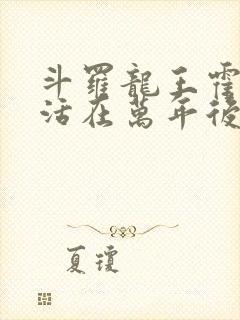 斗羅龍王霍
活在萬年後
夏瓊